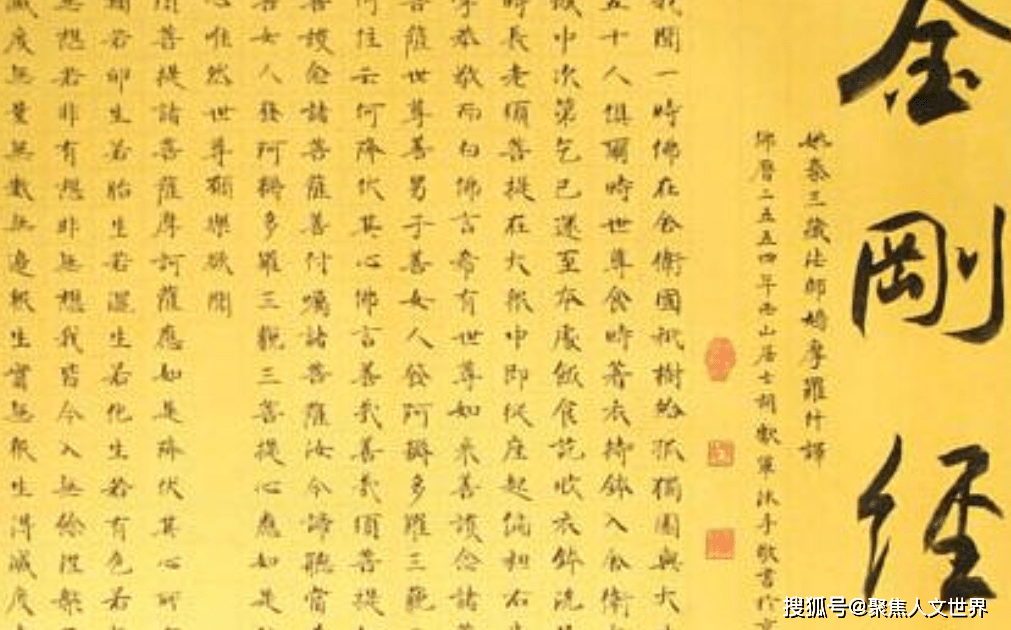 金剛經
姚秦三藏法師鳩摩羅什譯
佛曆二五五四年西山居士胡獻軍沐手敬書於
我聞一時佛在舍衛國祇樹給孤獨園與大
五十人俱爾時世尊食時著衣持鉢入舍衛
城中次第乞已還至本處飯食訖收衣鉢洗
時長老須菩提在大眾中即從座起偏袒右
掌恭敬而白佛言希有世尊如來善護念諸
菩薩世尊善男子善女人發阿耨多羅三藐
何住云何降伏其心佛言善哉善哉須菩提
善護念諸菩薩善付囑諸菩薩汝今諦聽當
善女人發阿耨多羅三藐三菩提心應如是
心唯然世尊願樂欲聞
須菩提諸菩薩摩訶薩應如是降伏其心所
類若卵生若胎生若濕生若化生若有色若
無想若非有想非無想我皆令入無餘涅槃
滅度無量無數無邊眾生實無眾生得滅度
搜狐号@聚焦人文世界